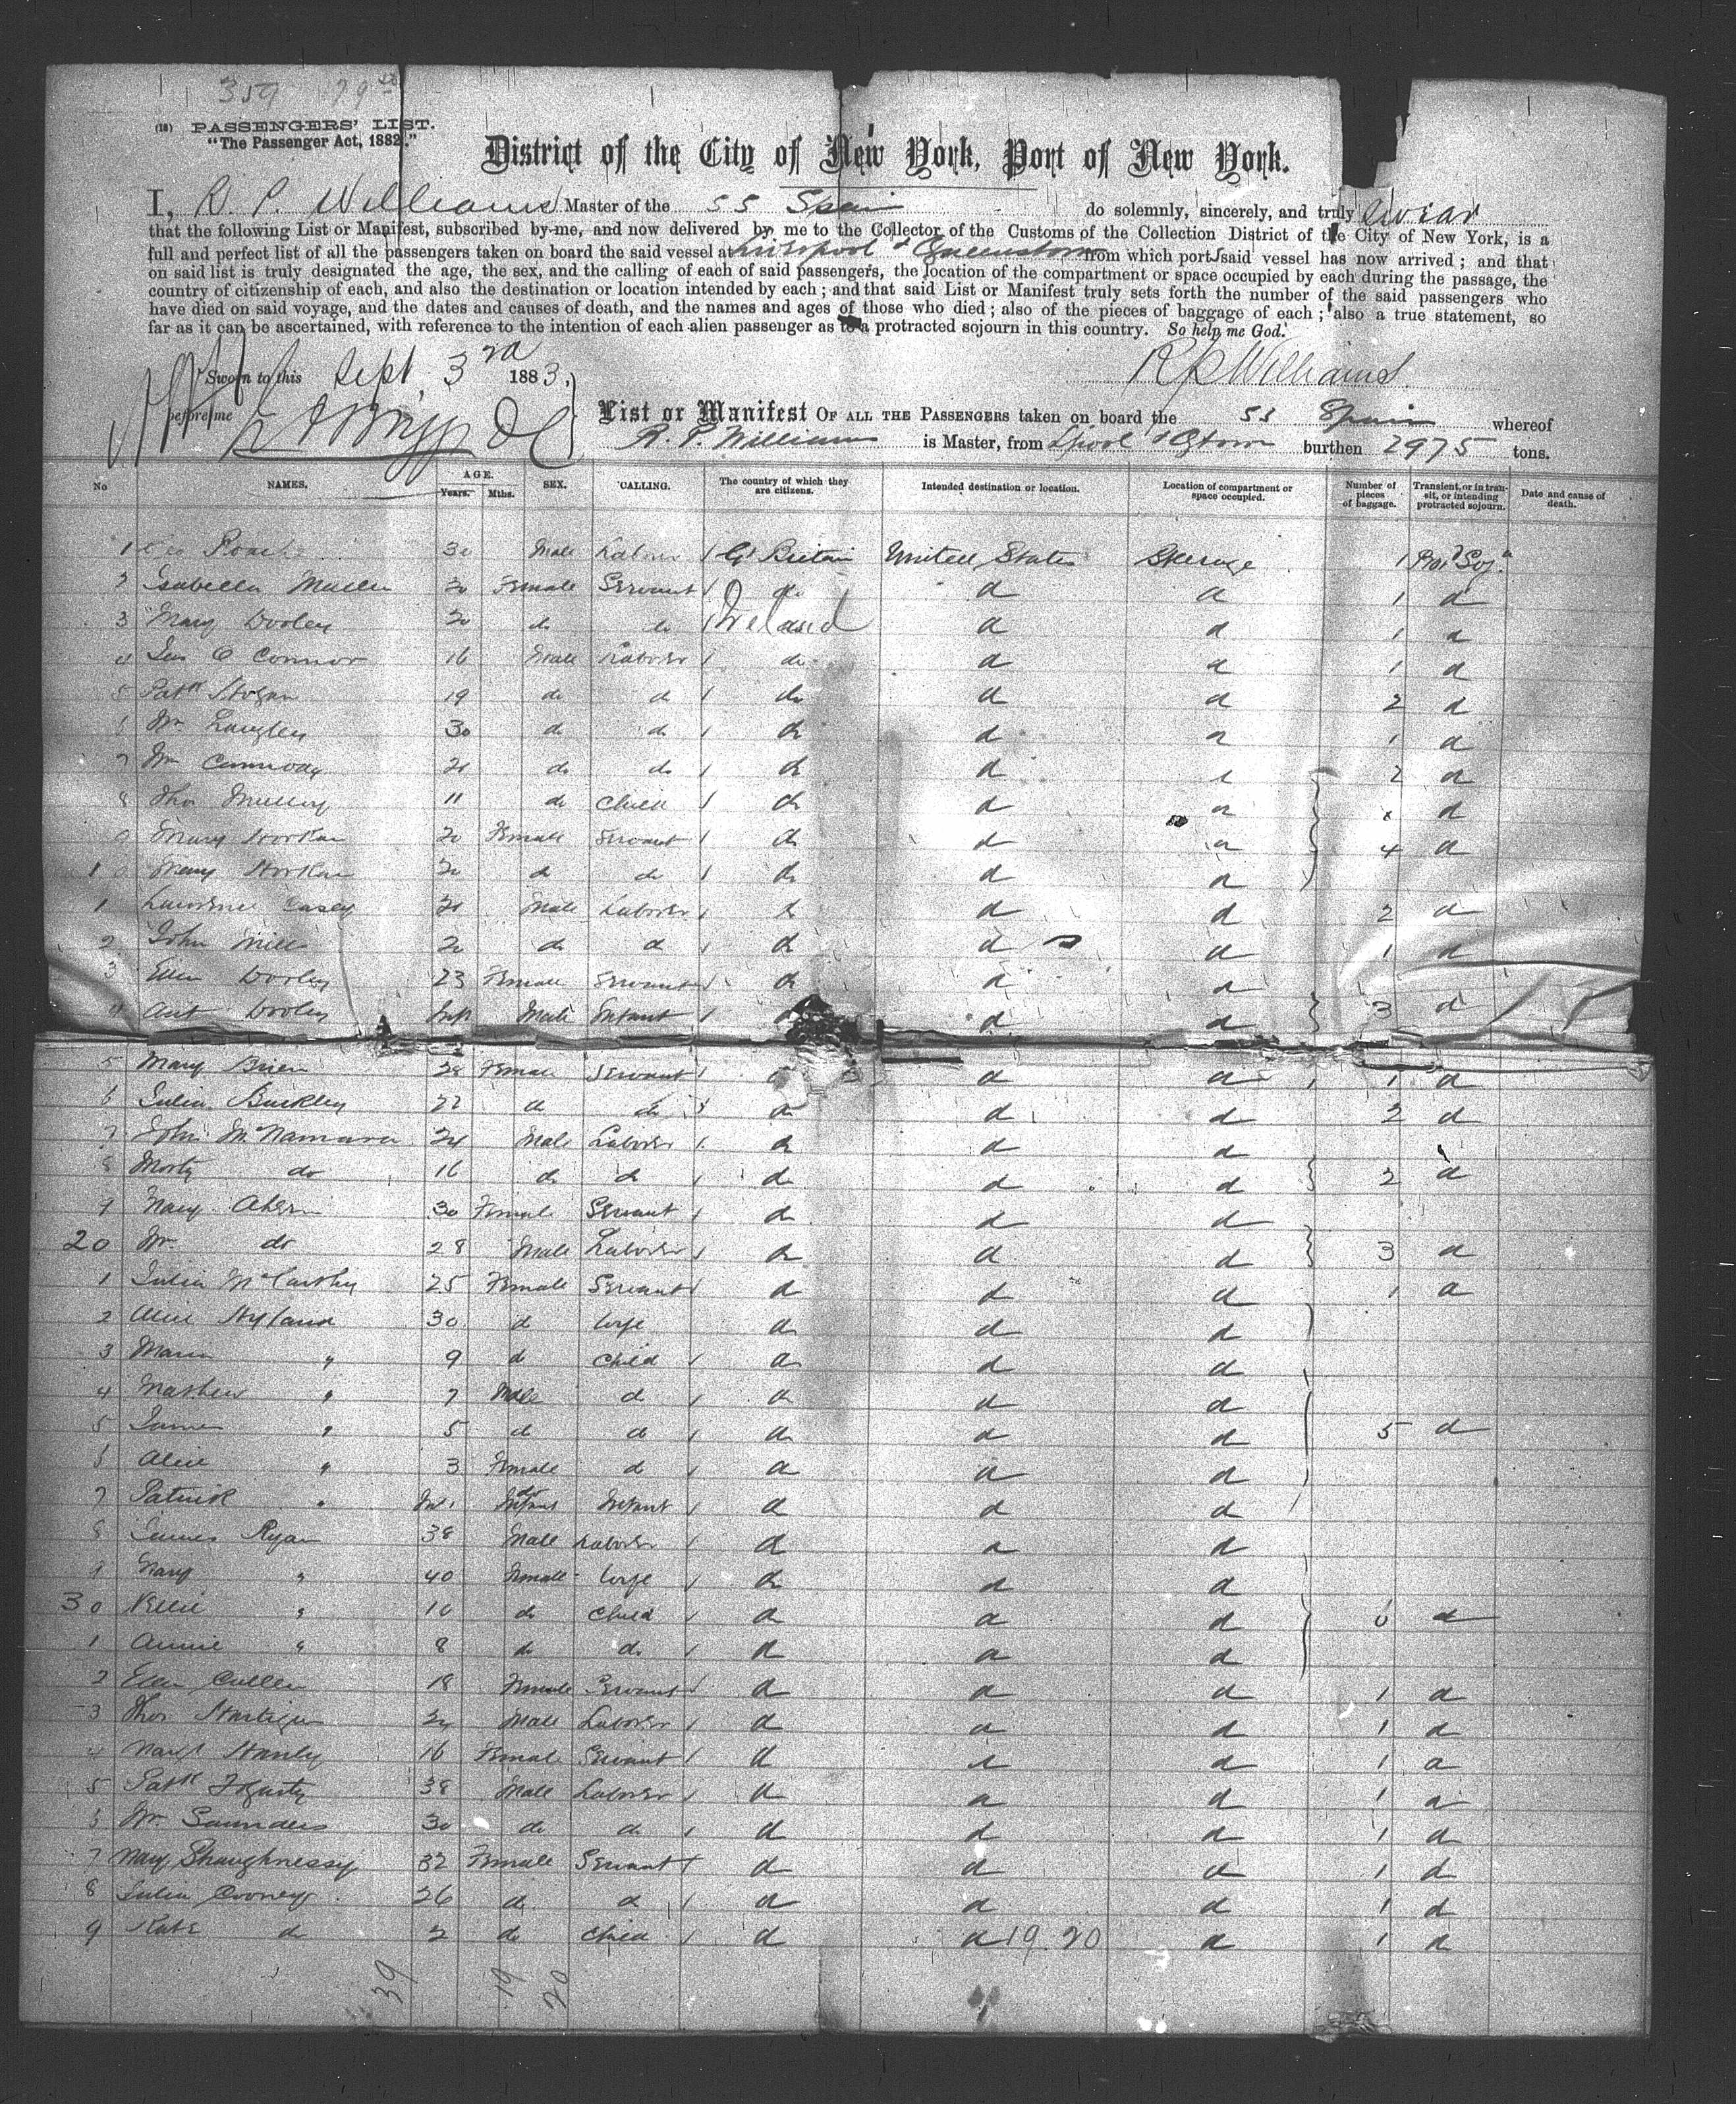 359 79
(18) PASSENGERS' LIST.
"The Passenger Act, 1882."
District of the City of New York, Port of New York.
I, R. P. Williams Master of the SS Spain do solemnly, sincerely, and truly swear
that the following List or Manifest, subscribed by me, and now delivered by me to the Collector of the Customs of the Collection District of the City of New York, is a
full and perfect list of all the passengers taken on board the said vessel at Liverpool & Queenstown from which port said vessel has now arrived; and that
on said list is truly designated the age, the sex, and the calling of each of said passengers, the location of the compartment or space occupied by each during the passage, the
country of citizenship of each, and also the destination or location intended by each; and that said List or Manifest truly sets forth the number of the said passengers who
have died on said voyage, and the dates and causes of death, and the names and ages of those who died; also of the pieces of baggage of each; also a true statement, so
far as it can be ascertained, with reference to the intention of each alien passenger as to a protracted sojourn in this country. So help me God.
R P Williams
Sworn to this Sept 3rd 1883,
before me
List or Manifest OF ALL THE PASSENGERS taken on board the SS Spain whereof
R. P. Williams is Master, from Lpool & Qtown burthen 2975 tons.
No NAMES. AGE. Years. Mths. SEX. CALLING. The country of which they are citizens. Intended destination or location. Location of compartment or space occupied. Number of pieces of baggage. Transient, or in transit, or intending protracted sojourn. Date and cause of death.
1 Roach 30 Male Laborer Gt Britain United States Steerage 1 Pro Soj.
2 Isabella Mullen 20 Female Servant do d d 1 d
3 Mary Dooley 20 do do Ireland d d 1 d
4 O Connor 16 Male Laborer do d d 1 d
5 Patk Hogan 19 do d do d d 2 d
6 Wm Langley 30 do do do d d 1 d
7 Wm do do do d 2 d
8 Thos 11 do Child do d d x d
9 Mary 20 Female Servant do d d 4 d
10 20 d do do d d
1 Lawrence Casey Male Laborer do d d 2 d
2 John 20 do d do d d 1 d
3 Ellen Dooley 23 Female Servant do d d
4 Dooley Inft Male Infant d d 3 d
5 Mary Brien Female Servant d d d 1 d
6 Julia Buckley 22 d do do d d 2 d
7 John McNamara 24 Male Laborer do d d
8 Morty do 16 do do do d d 2 d
9 Mary Ahern 30 Female Servant do d d
20 Wm do 28 Male Laborer do d d 3 d
1 Julia McCarthy 25 Female Servant do d d 1 d
2 Alice Hyland 30 d Wife do d d
3 Maria " 9 d Child do d d
4 Mathew " 7 Male d do d d
5 James " 5 d do do d d 5 d
6 Alice " 3 Female d d d d
7 Patrick " Inf do Infant d d d
8 James Ryan 38 Male Laborer d d d
9 Mary " 40 Female Wife do d d
30 Nellie " do Child d d d d
1 Annie " 8 do do d d d
2 Ellen Cullen 18 Female Servant d d d 1 d
3 Thos Hartigan 24 Male Laborer d d d 1 d
4 Margt Hanly 16 Female Servant d d d 1 d
5 Patk Fogarty 38 Male Laborer d d d 1 d
6 Wm Saunders 30 do d d d d 1 d
7 Mary Shaughnessy 32 Female Servant d d d 1 d
8 Julia Cooney 26 do d d d d 1 d
9 Kate do 2 do Child d d 19.20 d 1 d
39 19 20